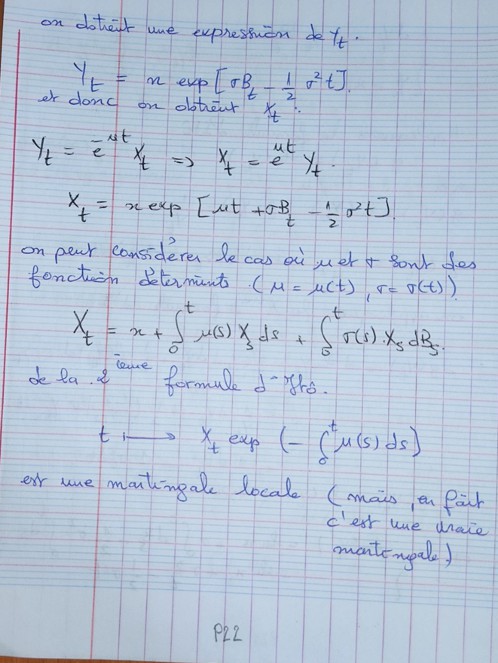 on obtient une expression de Y_t.
Y_t = x exp [σB_t - 1/2 σ² t].
et donc on obtient X_t :
Y_t = e^{-μt} X_t => X_t = e^{μt} Y_t.
X_t = x exp [μt + σB_t - 1/2 σ² t].
on peut considérer le cas où μ et σ sont des
fonction détermints (μ = μ(t), σ = σ(t))
X_t = x + ∫_0^t μ(s) X_s ds + ∫_0^t σ(s).X_s dB_s.
de la 2 ième formule d'Itô.
t ⟼ X_t exp (- ∫_0^t μ(s) ds)
est une martingale locale (mais, en fait
c'est une vraie
martingale)
P22